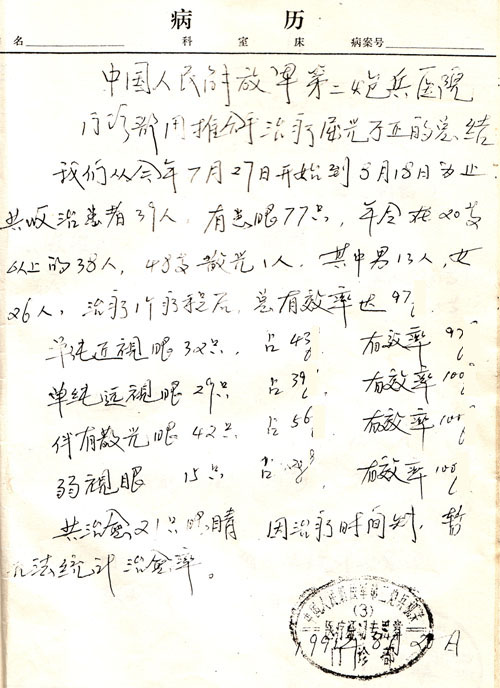 病历
名 科 室 床 病案号
中国人民解放军第二炮兵医院
门诊部用推拿治疗屈光不正的总结
我们从今年7月27日开始到8月18日为止
共收治患者39人，有患眼77只，年令在20岁
以上的38人，48岁散光1人，其中男13人，女
26人，治疗1个疗程后，总有效率达97%
单纯近视眼32只，占43% 有效率97%
单纯远视眼29只 占39%，有效率100%
伴有散光眼42只 占56% 有效率100%
弱视眼 15只 有效率100%
共治愈21只眼睛 因治疗时间短，暂
无法统计治愈率。
(3)
门诊部